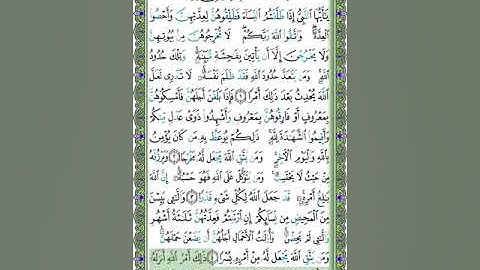 يَٰٓأَيُّهَا ٱلنَّبِىُّ إِذَا طَلَّقْتُمُ ٱلنِّسَآءَ فَطَلِّقُوهُنَّ لِعِدَّتِهِنَّ وَأَحْصُوا۟
ٱلْعِدَّةَ ۖ وَٱتَّقُوا۟ ٱللَّهَ رَبَّكُمْ ۖ لَا تُخْرِجُوهُنَّ مِنۢ بُيُوتِهِنَّ
وَلَا يَخْرُجْنَ إِلَّآ أَن يَأْتِينَ بِفَٰحِشَةٍ مُّبَيِّنَةٍ ۚ وَتِلْكَ حُدُودُ
ٱللَّهِ ۚ وَمَن يَتَعَدَّ حُدُودَ ٱللَّهِ فَقَدْ ظَلَمَ نَفْسَهُۥ ۚ لَا تَدْرِى لَعَلَّ
ٱللَّهَ يُحْدِثُ بَعْدَ ذَٰلِكَ أَمْرًا ١ فَإِذَا بَلَغْنَ أَجَلَهُنَّ فَأَمْسِكُوهُنَّ
بِمَعْرُوفٍ أَوْ فَارِقُوهُنَّ بِمَعْرُوفٍ وَأَشْهِدُوا۟ ذَوَىْ عَدْلٍ مِّنكُمْ
وَأَقِيمُوا۟ ٱلشَّهَٰدَةَ لِلَّهِ ۚ ذَٰلِكُمْ يُوعَظُ بِهِۦ مَن كَانَ يُؤْمِنُ
بِٱللَّهِ وَٱلْيَوْمِ ٱلْءَاخِرِ ۚ وَمَن يَتَّقِ ٱللَّهَ يَجْعَل لَّهُۥ مَخْرَجًا ٢ وَيَرْزُقْهُ
مِنْ حَيْثُ لَا يَحْتَسِبُ ۚ وَمَن يَتَوَكَّلْ عَلَى ٱللَّهِ فَهُوَ حَسْبُهُۥٓ ۚ إِنَّ ٱللَّهَ
بَٰلِغُ أَمْرِهِۦ ۚ قَدْ جَعَلَ ٱللَّهُ لِكُلِّ شَىْءٍ قَدْرًا ٣ وَٱلَّٰٓـِٔى يَئِسْنَ
مِنَ ٱلْمَحِيضِ مِن نِّسَآئِكُمْ إِنِ ٱرْتَبْتُمْ فَعِدَّتُهُنَّ ثَلَٰثَةُ أَشْهُرٍ
وَٱلَّٰٓـِٔى لَمْ يَحِضْنَ ۚ وَأُو۟لَٰتُ ٱلْأَحْمَالِ أَجَلُهُنَّ أَن يَضَعْنَ حَمْلَهُنَّ ۚ
وَمَن يَتَّقِ ٱللَّهَ يَجْعَل لَّهُۥ مِنْ أَمْرِهِۦ يُسْرًا ٤ ذَٰلِكَ أَمْرُ ٱللَّهِ أَنزَلَهُۥٓ